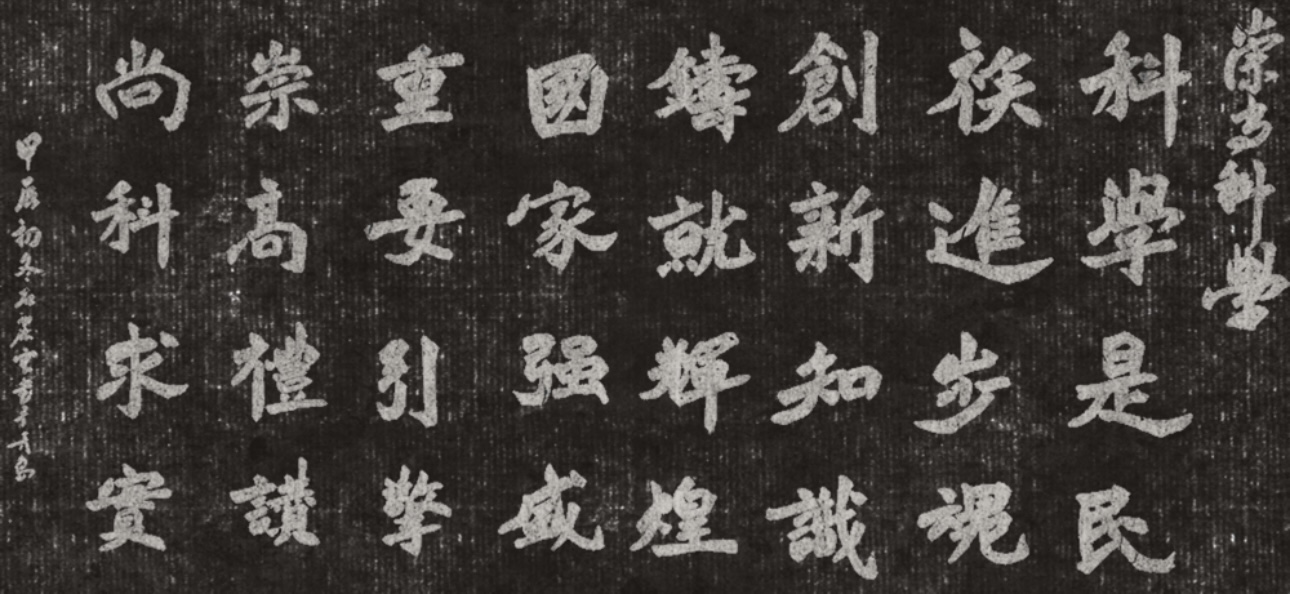 崇尚科學
科學是民
族進步魂
創新知識
鑄就輝煌
國家强盛
重要引擎
崇高禮讚
尚科求實
甲辰初冬